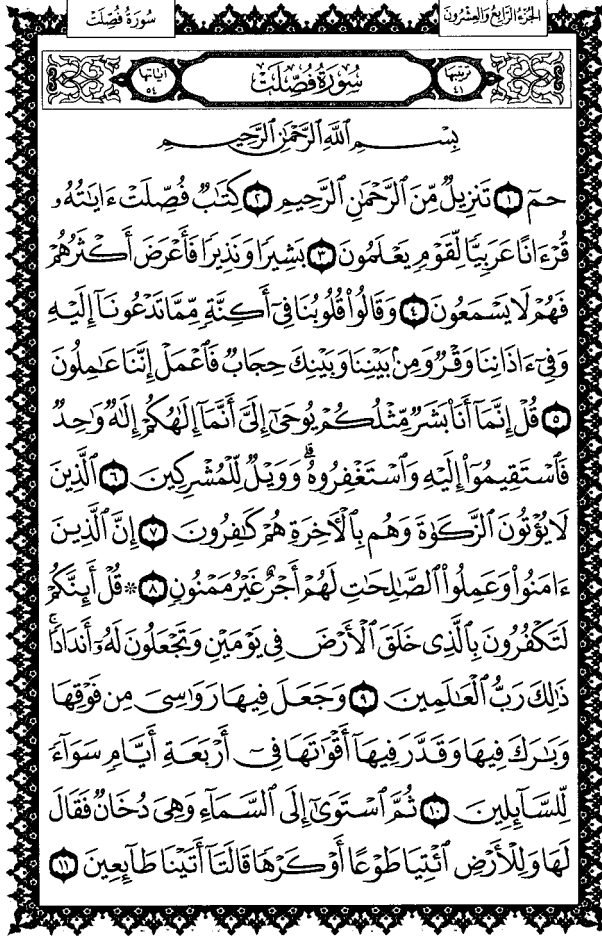 الجزء الرابع والعشرون
سورة فصلت
ترتيبها ٤١
سُورَةُ فُصِّلَتْ
آياتها ٥٤
بِسْمِ ٱللَّهِ ٱلرَّحْمَٰنِ ٱلرَّحِيمِ
حمٓ ١ تَنزِيلٌ مِّنَ ٱلرَّحْمَٰنِ ٱلرَّحِيمِ ٢ كِتَٰبٌ فُصِّلَتْ ءَايَٰتُهُۥ
قُرْءَانًا عَرَبِيًّا لِّقَوْمٍ يَعْلَمُونَ ٣ بَشِيرًا وَنَذِيرًا فَأَعْرَضَ أَكْثَرُهُمْ
فَهُمْ لَا يَسْمَعُونَ ٤ وَقَالُوا۟ قُلُوبُنَا فِىٓ أَكِنَّةٍ مِّمَّا تَدْعُونَآ إِلَيْهِ
وَفِىٓ ءَاذَانِنَا وَقْرٌ وَمِنۢ بَيْنِنَا وَبَيْنِكَ حِجَابٌ فَٱعْمَلْ إِنَّنَا عَٰمِلُونَ
٥ قُلْ إِنَّمَآ أَنَا۠ بَشَرٌ مِّثْلُكُمْ يُوحَىٰٓ إِلَىَّ أَنَّمَآ إِلَٰهُكُمْ إِلَٰهٌ وَٰحِدٌ
فَٱسْتَقِيمُوٓا۟ إِلَيْهِ وَٱسْتَغْفِرُوهُ ۗ وَوَيْلٌ لِّلْمُشْرِكِينَ ٦ ٱلَّذِينَ
لَا يُؤْتُونَ ٱلزَّكَوٰةَ وَهُم بِٱلْءَاخِرَةِ هُمْ كَٰفِرُونَ ٧ إِنَّ ٱلَّذِينَ
ءَامَنُوا۟ وَعَمِلُوا۟ ٱلصَّٰلِحَٰتِ لَهُمْ أَجْرٌ غَيْرُ مَمْنُونٍ ٨ * قُلْ أَئِنَّكُمْ
لَتَكْفُرُونَ بِٱلَّذِى خَلَقَ ٱلْأَرْضَ فِى يَوْمَيْنِ وَتَجْعَلُونَ لَهُۥٓ أَندَادًا ۚ
ذَٰلِكَ رَبُّ ٱلْعَٰلَمِينَ ٩ وَجَعَلَ فِيهَا رَوَٰسِىَ مِن فَوْقِهَا
وَبَٰرَكَ فِيهَا وَقَدَّرَ فِيهَآ أَقْوَٰتَهَا فِىٓ أَرْبَعَةِ أَيَّامٍ سَوَآءً
لِّلسَّآئِلِينَ ١٠ ثُمَّ ٱسْتَوَىٰٓ إِلَى ٱلسَّمَآءِ وَهِىَ دُخَانٌ فَقَالَ
لَهَا وَلِلْأَرْضِ ٱئْتِيَا طَوْعًا أَوْ كَرْهًا قَالَتَآ أَتَيْنَا طَآئِعِينَ ١١